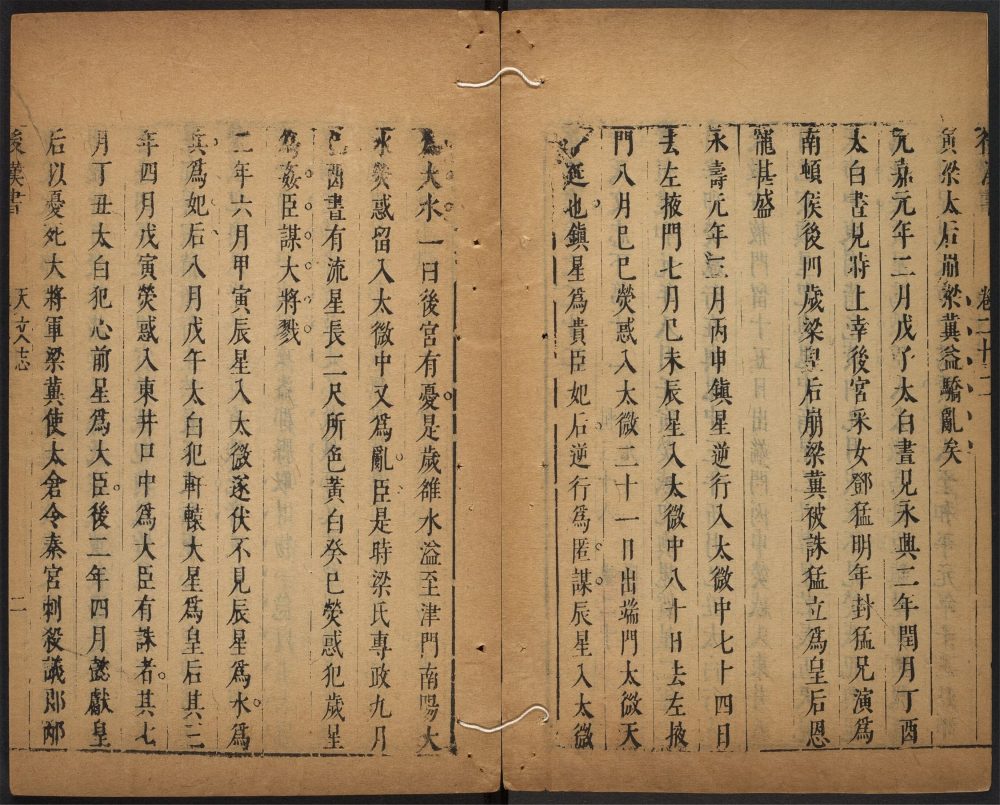 後漢書 卷二十二
寅梁太后崩梁冀益驕亂矣
元嘉元年二月戊子太白晝見永興二年閏月丁酉
太白晝見時上幸後宮采女鄧猛明年封猛兄演爲
南頓侯後四歲梁皇后崩梁冀被誅猛立爲皇后恩
寵甚盛
永壽元年三月丙申鎮星逆行入太微中七十四日
去左掖門七月巳未辰星入太微中八十日去左掖
門八月巳巳熒惑入太微二十一日出端門太微天
廷也鎮星爲貴臣妃后逆行爲匿謀辰星入太微
爲大水一曰後宮有憂是歲雒水溢至津門南陽大
水熒惑留入太微中又爲亂臣是時梁氏專政九月
巳酉晝有流星長二尺所色黃白癸巳熒惑犯歲星
爲姦臣謀大將戮
二年六月甲寅辰星入太微遂伏不見辰星爲水爲
兵爲妃后八月戊午太白犯軒轅大星爲皇后其三
年四月戊寅熒惑入東井口中爲大臣有誅者其七
月丁丑太白犯心前星爲大臣後二年四月懿獻皇
后以憂死大將軍梁冀使太倉令秦宮刺殺議郎邴
後漢書 天文志 二